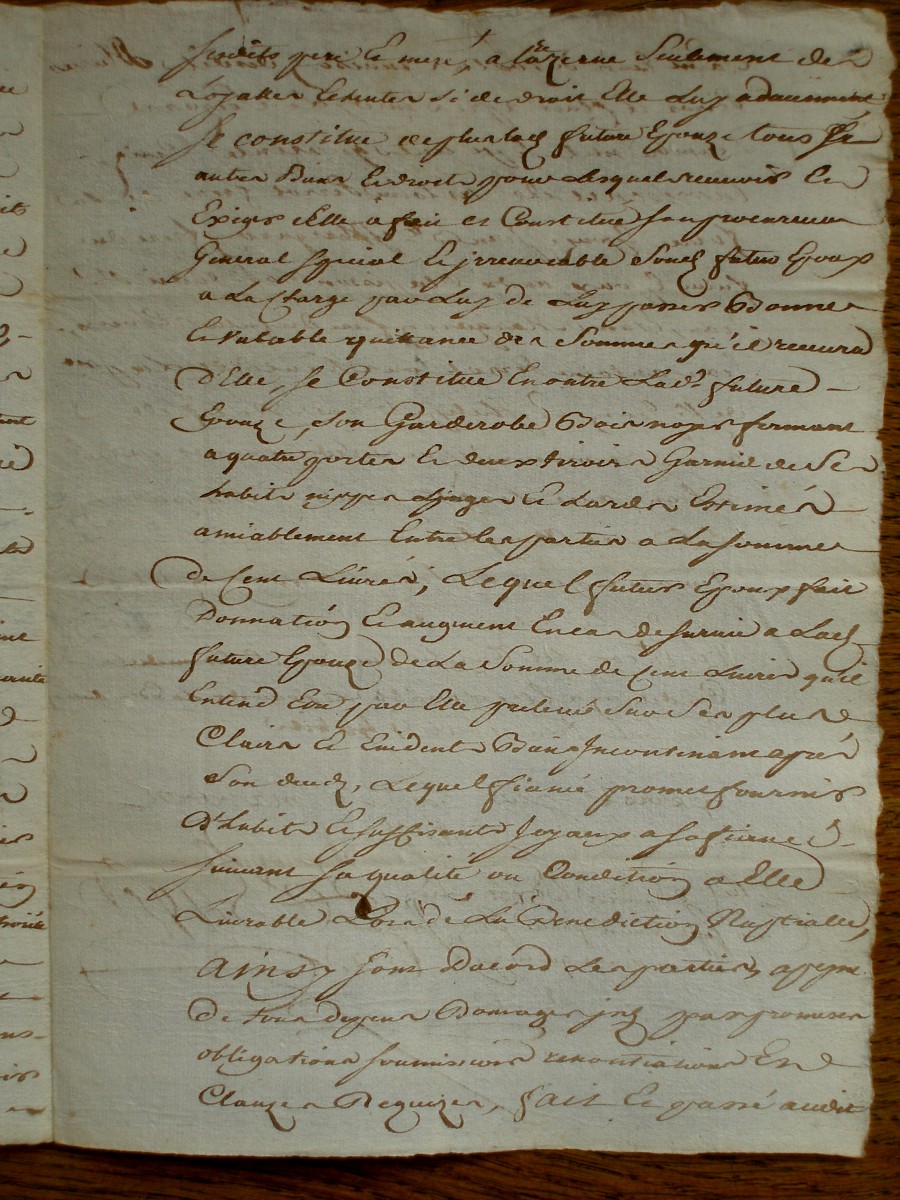 sesdits pere Et mere, a Seulement de
Loyalle Et de droit Elle
Se constitue de plus lad. future Epouze tous Ses
autres Biens Et droits pour Lesquels recevoir Et
Exiger Elle a fait et Constitué son procureur
General spécial Et jrrevocable Sond. futur Epoux
a La Charge par Luy de Luy passer Bonne
Et Vatable quittance des Sommes qu'il recevra
d'Elle, se Constitue En outre Lad.e future
Epouze, son Garderobe Bois noyer fermant
a quatre portes Et deux tiroirs Garnie de Ses
habits nippes Linges Et hardes Estimés
amiablement Entre les parties a La somme
de Cent Livres, Lequel futur Epoux fait
Donnation Et augment En cas de survie a Lad.
future Epouze de La Somme de Cent Livres qu'il
Entend Etre par Elle prelevé Sur Ses plus
Clairs Et Evidents Biens Jncontinant après
Son deced, Lequel fiancé promet fournir
D'habits Et suffisants Joyaux a sa fiancé
suivant sa qualité ou Condition a Elle
Livrable Lors de La Benediction Nuptialle,
Ainsy sont Dacord Les parties, a peyne
de tous depens Domages jnts par promesses
obligations soumissions renontiations Et
Clauzes Requizes, fait Et passé audit